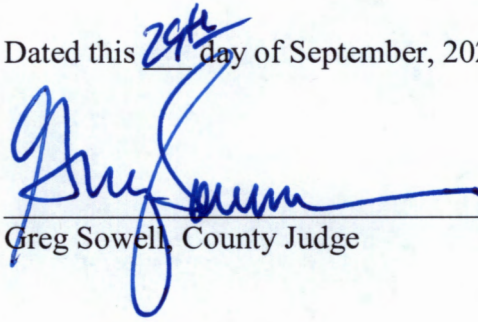 Dated this 29th day of September, 202
Greg Sowell
Greg Sowell, County Judge